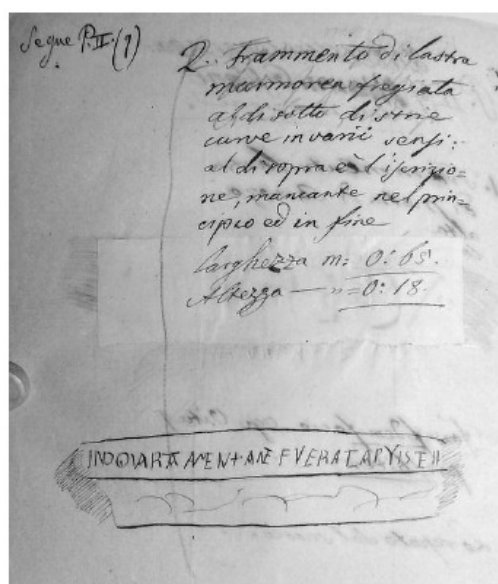 Segue P. II. (9)
2. Frammento di lastra
marmorea fregiata
al di sotto di strie
curve in varii sensi:
al di sopra è l'iscrizio=
ne, mancante nel prin=
cipio ed in fine
Larghezza m: 0: 65.
Altezza — n= 0: 18.